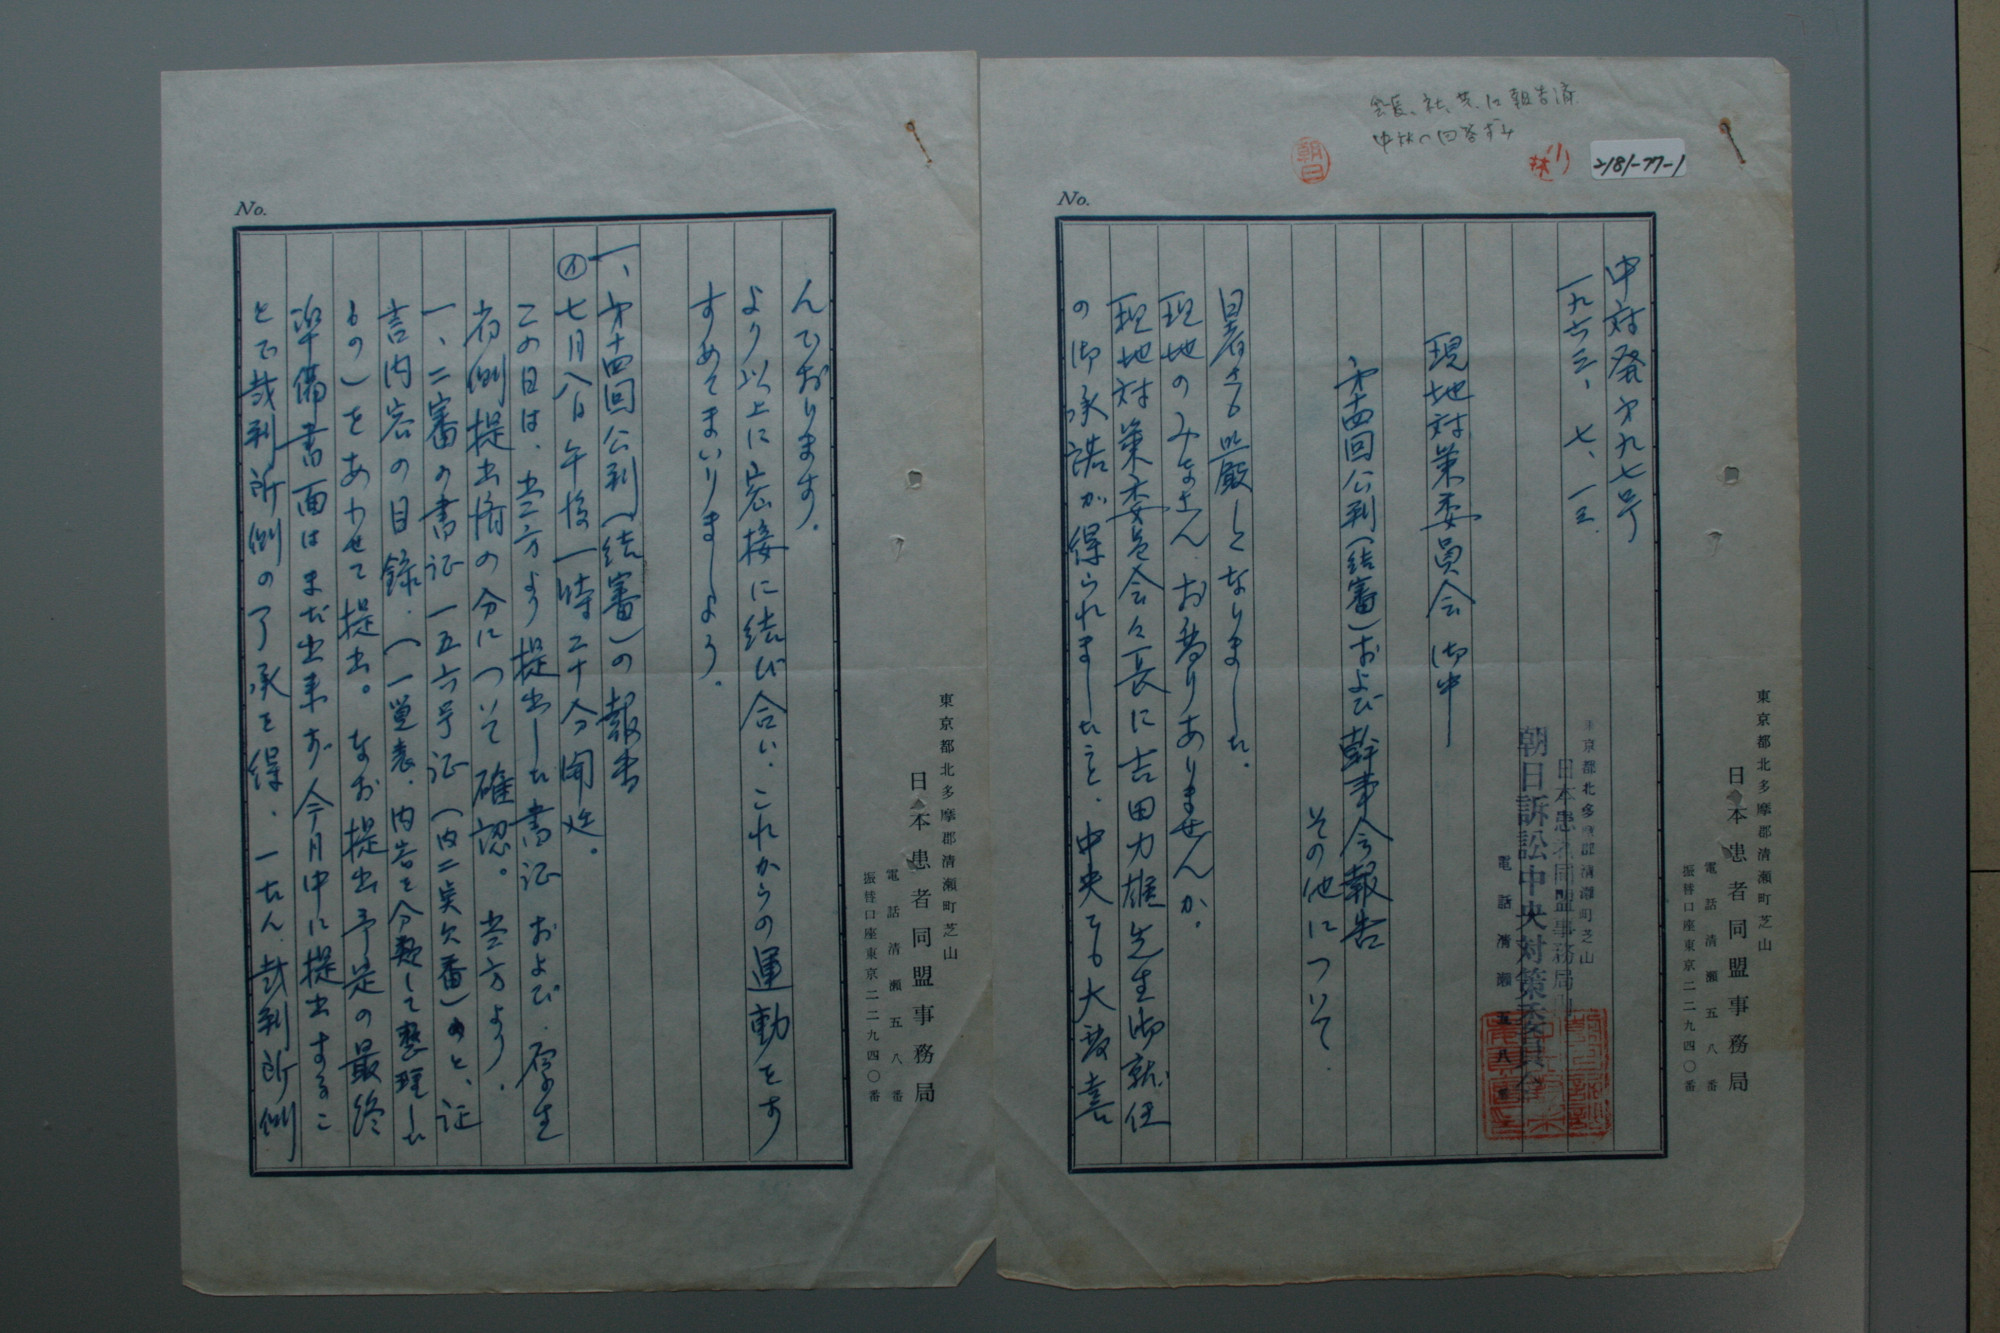 会長、社、共、に報告済
中対へ回答ずみ
朝日
小林
2181-77-1
No.
中対発才九七号
一九六三、七、一三.
東京都北多摩郡清瀬町芝山
日本患者同盟事務局内
朝日訴訟中央対策委員会
電話清瀬五八番
現地対策委員会御中
才十四回公判(結審)および幹事会報告
その他について.
暑さも峻厳しくなりました。
現地のみなさん、お変りありませんか。
現地対策委員会々長に吉田力雄先生御就任
の御承諾が得られましたこと、中央でも大変喜
東京都北多摩郡清瀬町芝山
日本患者同盟事務局
電話清瀬五八番
振替口座東京二二九四〇番
No.
んでおります。
より以上に密接に結び合い、これからの運動をす
すめてまいりましょう。
一、才十四回公判(結審)の報告
㋑七月八日午後一時二十分開廷。
この日は、当方より提出した書証および、厚生
省側提出済の分について確認。当方より、
一、二審の書証一五六号証(内二头欠番)のと、証
言内容の目録、(一覧表、内容を分類して整理した
もの)をあわせて提出。なお提出予定の最終
準備書面はまだ出来ず今月中に提出するこ
とで裁判所側の了承を得、一たん、裁判所側
東京都北多摩郡清瀬町芝山
日本患者同盟事務局
電話清瀬五八番
振替口座東京二二九四〇番